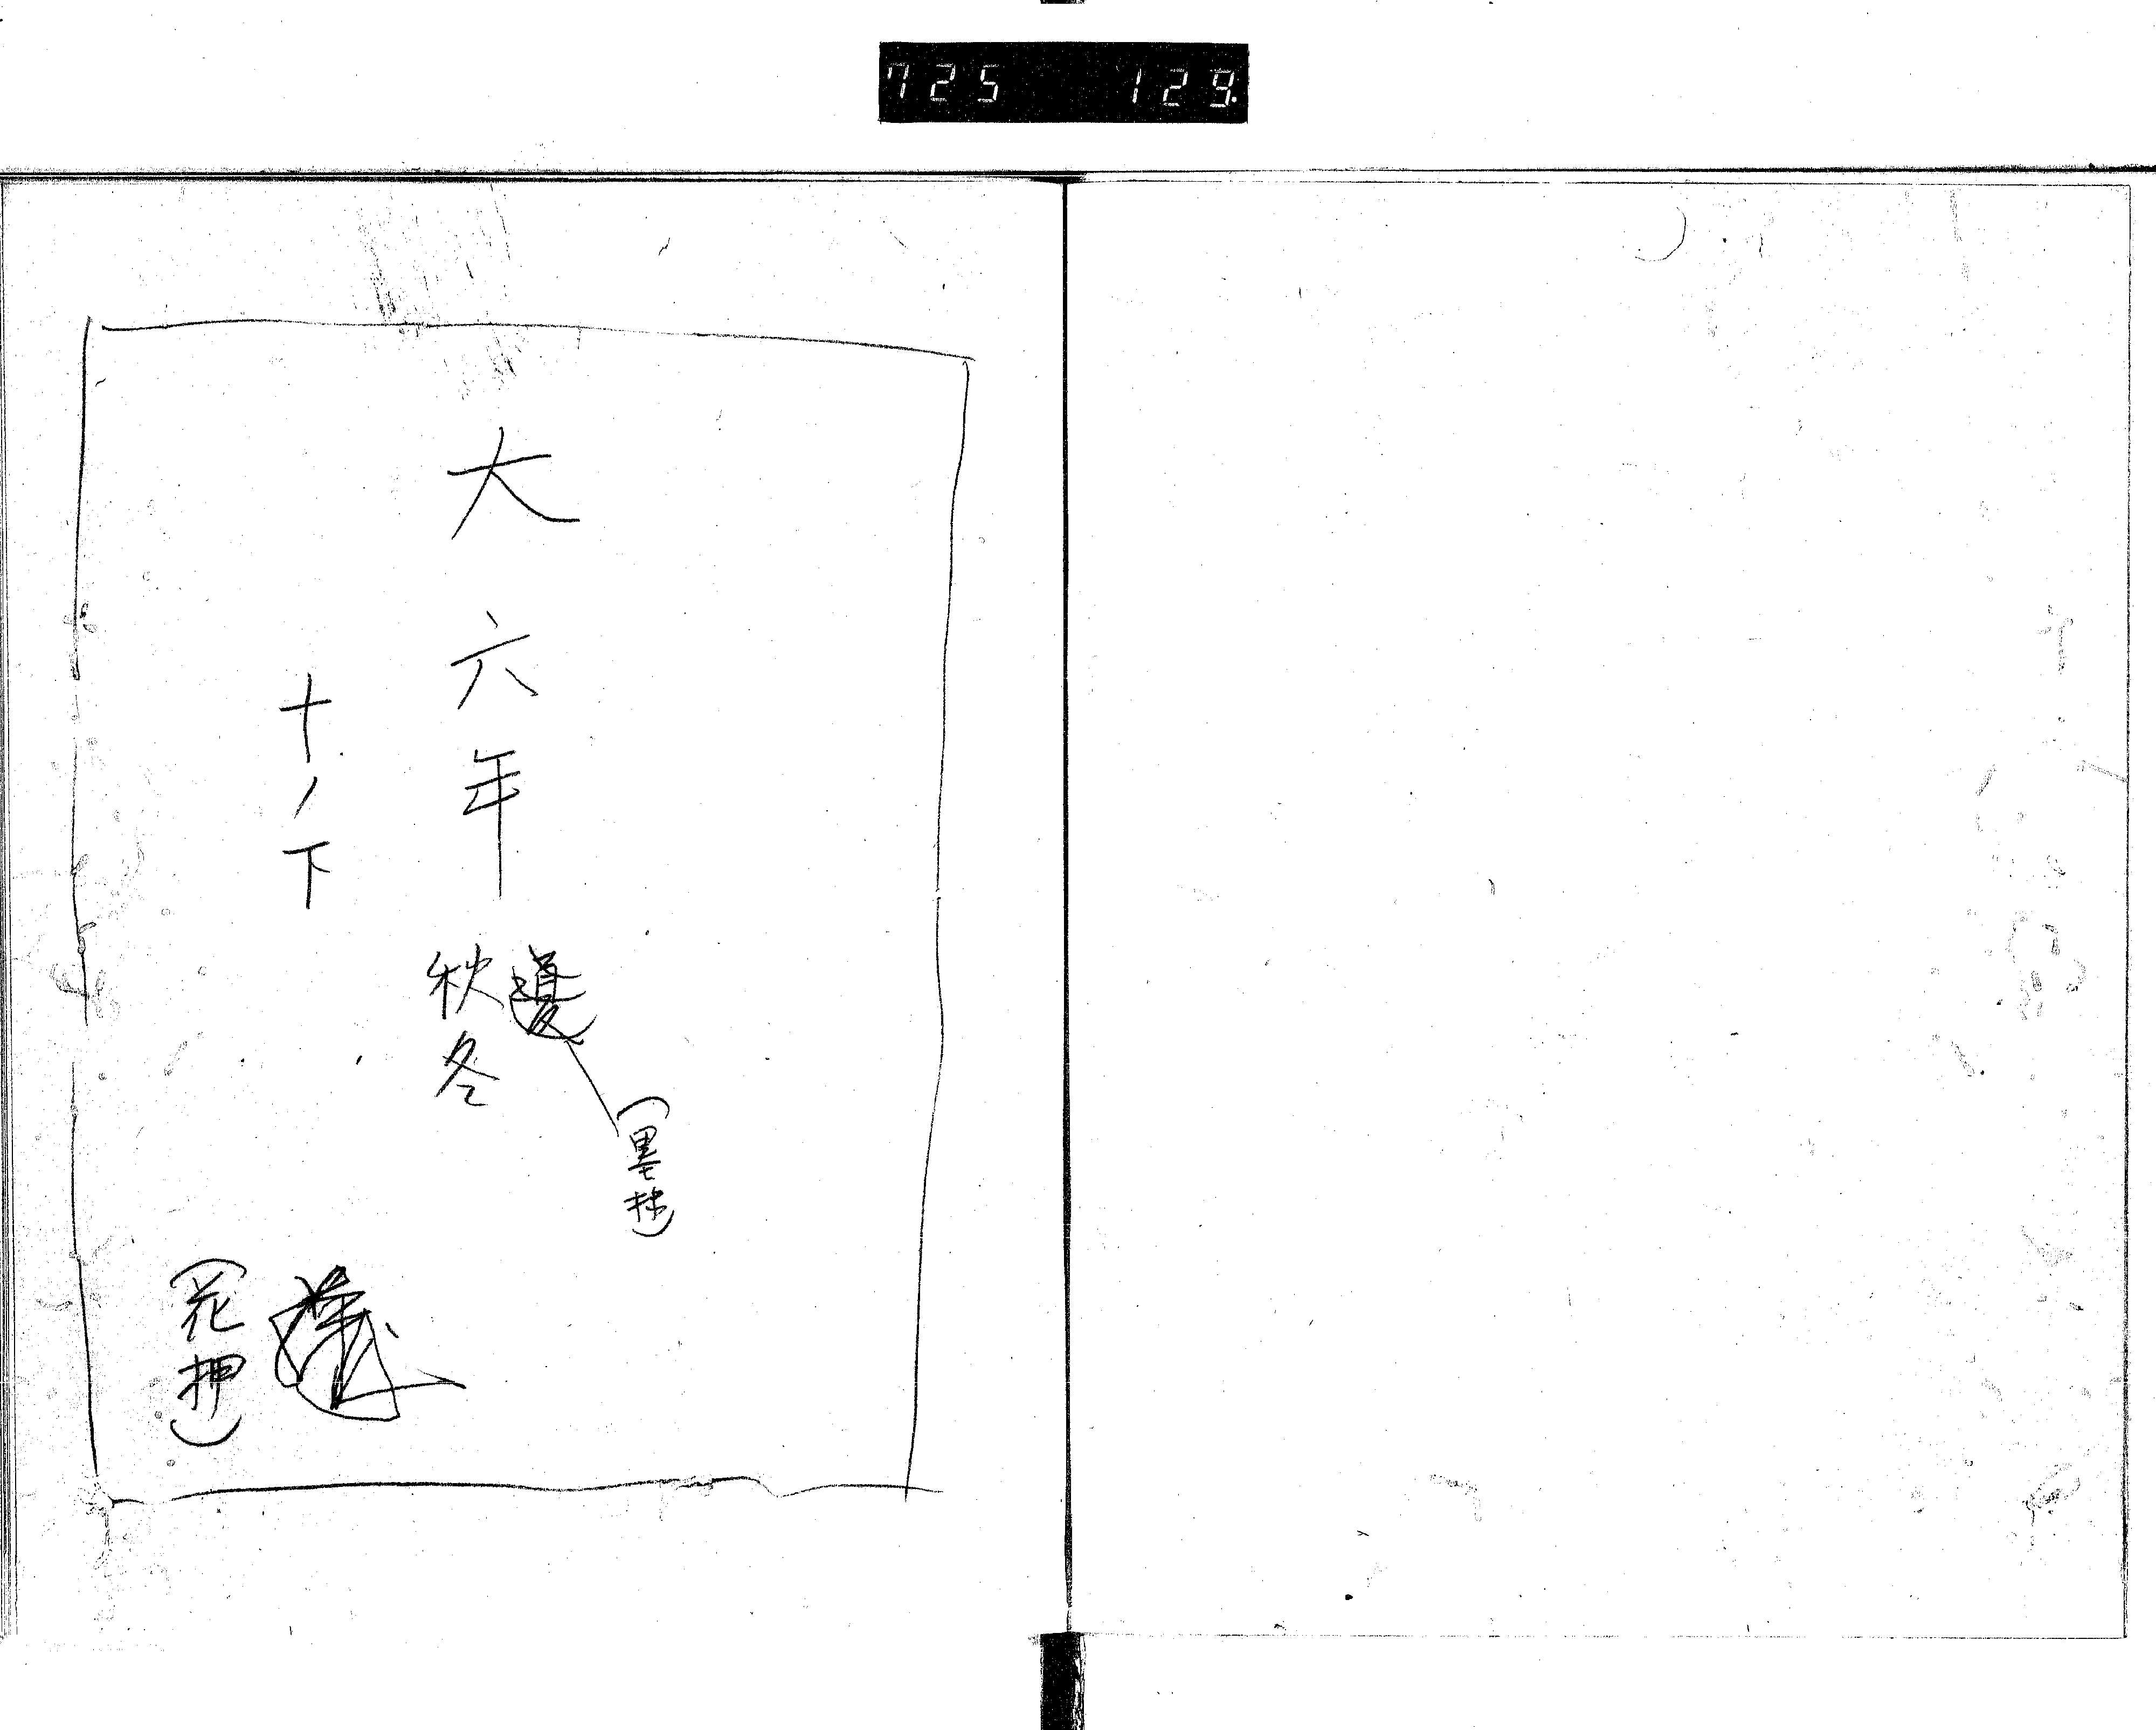 725 129.
大六年
秋冬
(墨抹)
十ノ下
(花押)